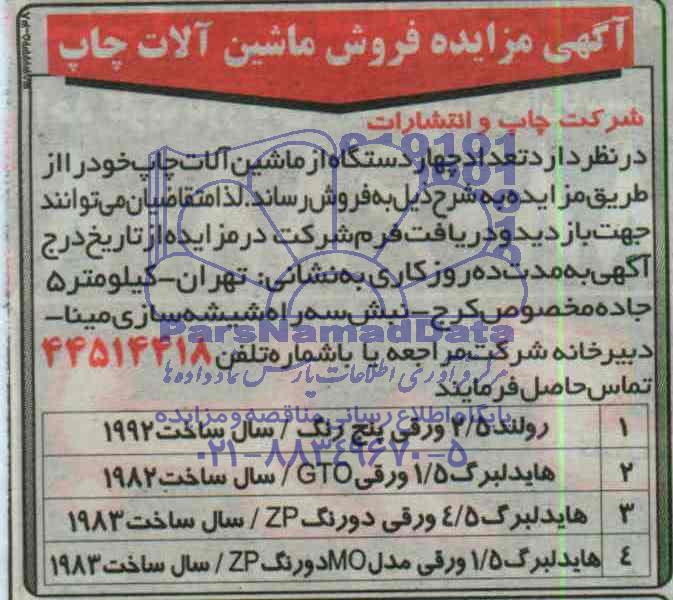 آگهی مزایده فروش ماشین آلات چاپ
شرکت چاپ و انتشارات
در نظر دارد تعداد چهار دستگاه از ماشین آلات چاپ خود را از
طریق مزایده به شرح ذیل به فروش رساند. لذا متقاضیان می‌توانند
جهت بازدید و دریافت فرم شرکت در مزایده از تاریخ درج
آگهی به مدت ده روز کاری به نشانی: تهران-کیلومتر ۵
جاده مخصوص کرج-نبش سه راه شیشه سازی مینا-
ParsNamadData
دبیرخانه شرکت مراجعه یا با شماره تلفن ۴۴۵۱۴۴۱۸
مرکز فرآوری اطلاعات پارس نماد داده ها
تماس حاصل فرمایند
پایگاه اطلاع رسانی مناقصه و مزایده
۱ رولند ۲/۵ ورقی پنج رنگ / سال ساخت ۱۹۹۲
۰۲۱-۸۸۳۴۹۶۷۰-۵
۲ هایدلبرگ ۱/۵ ورقی GTO / سال ساخت ۱۹۸۲
۳ هایدلبرگ ۴/۵ ورقی دورنگ ZP / سال ساخت ۱۹۸۳
۴ هایدلبرگ ۱/۵ ورقی مدل MO دورنگ ZP / سال ساخت ۱۹۸۳